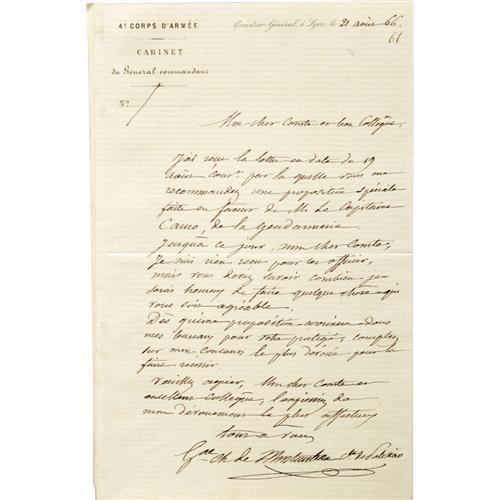 4e CORPS D'ARMÉE
Quartier-Général à Lyon, le 21 août 66.
61
CABINET
du Général commandant
No
Mon cher Comte et bon Collègue,
J'ai reçu la lettre en date du 19
août cour.t par laquelle vous me
recommandez une proposition spéciale
faite en faveur de M. le Capitaine
de la Gendarmerie
Jusqu'à ce jour, mon cher Comte,
je n'ai rien reçu pour cet officier,
mais vous devez savoir combien je
serais heureux de faire quelque chose qui
vous soit agréable.
Dès qu'une proposition arrivera dans
mes bureaux pour votre protégé, comptez
sur mon concours le plus dévoué pour la
faire réussir.
Veuillez agréer, Mon cher Comte et
excellent collègue, l'expression de
mon dévouement le plus affectueux
tout à vous
Gal Ch. de Montauban Cte de Palikao